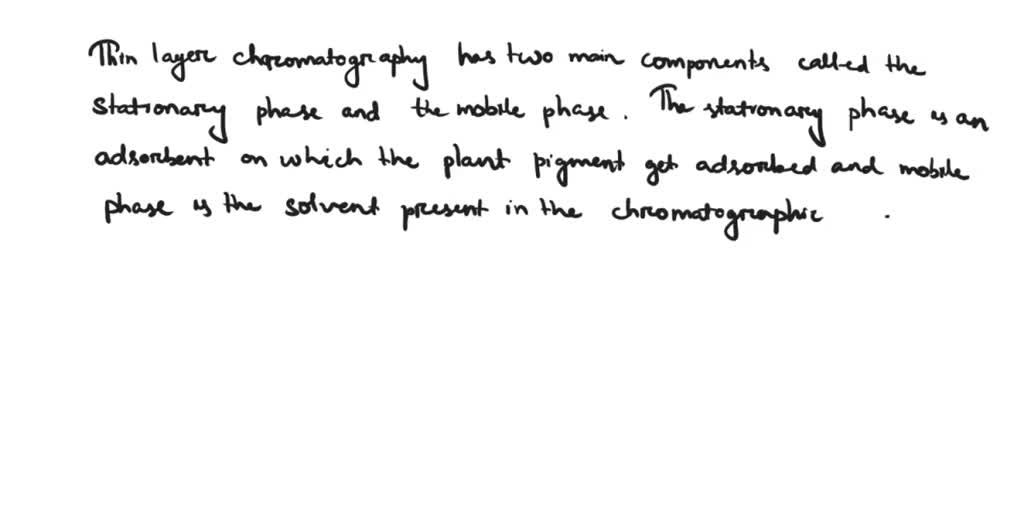 Thin layer chromatography has two main components called the
stationary phase and the mobile phase. The stationary phase is an
adsorbent on which the plant pigment get adsorbed and mobile
phase is the solvent present in the chromatographic .